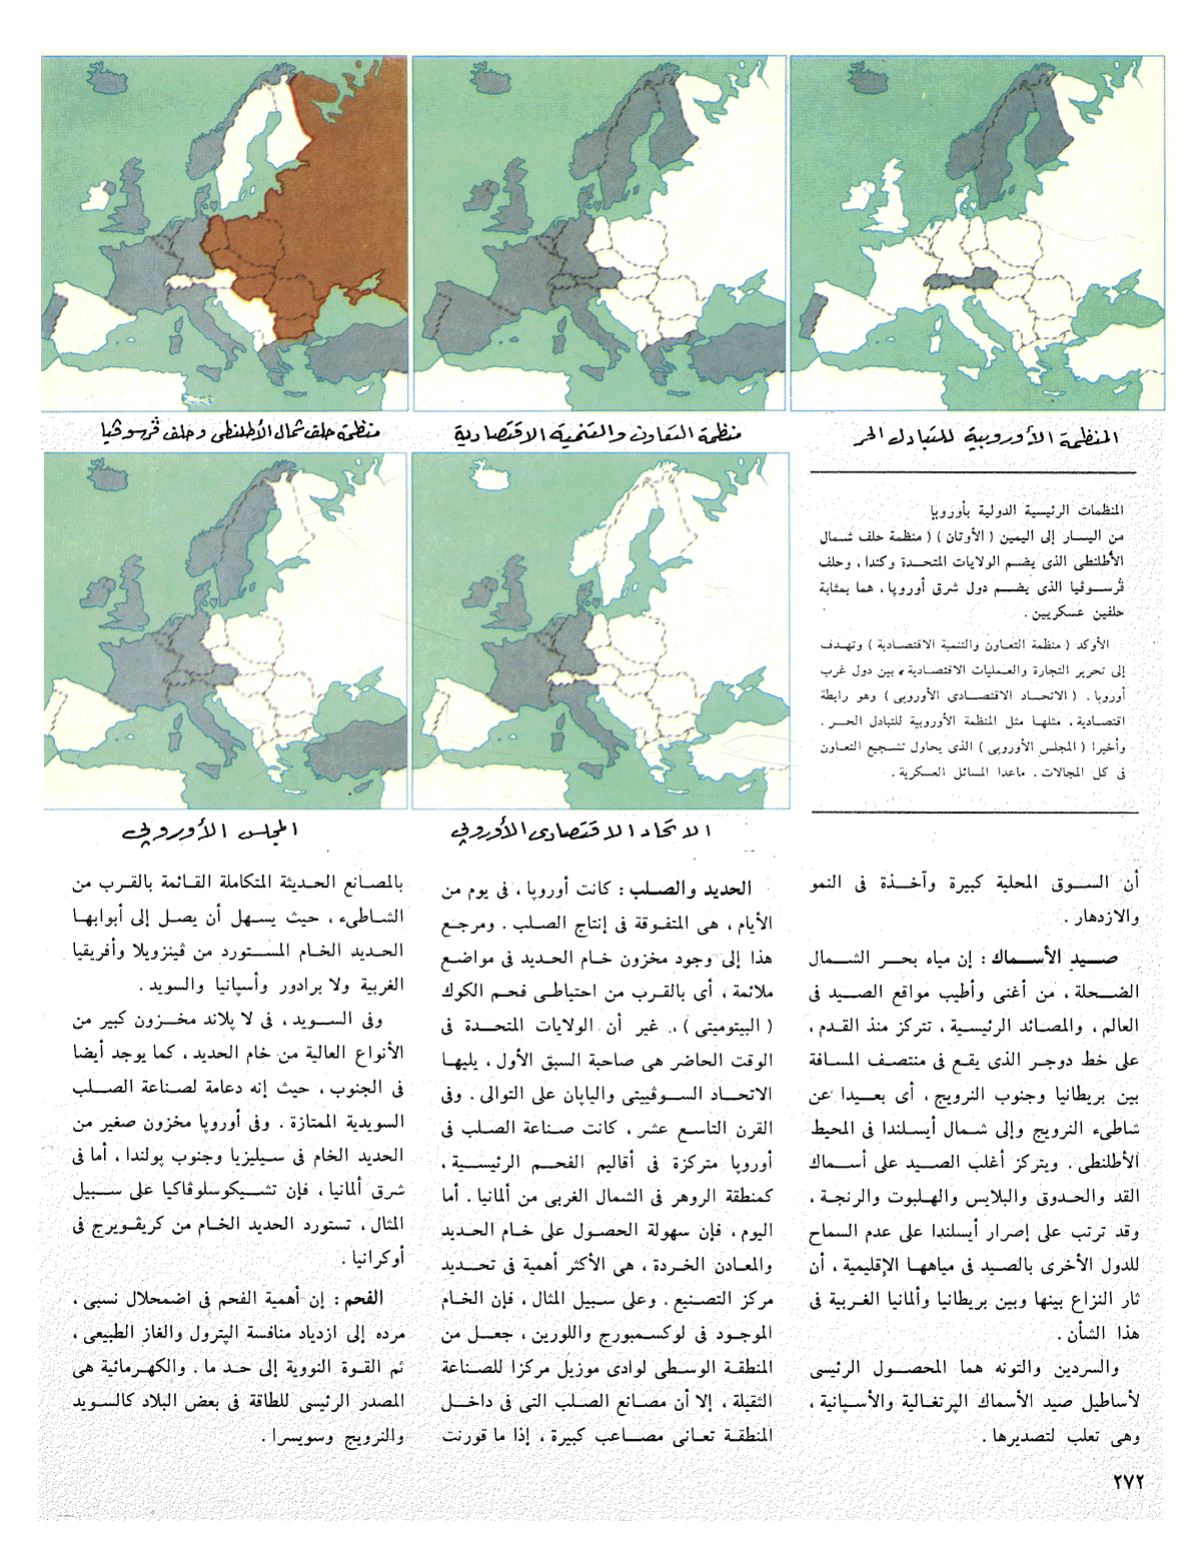 منظمة حلف شمال الأطلنطى وحلف ڤرسوڤيا
منظمة التعاون والتنمية الاقتصادية
المنظمة الأوروبية للتبادل الحر
المجلس الأوروبي
الاتحاد الاقتصادى الأوروبي
المنظمات الرئيسية الدولية بأوروبا
من اليسار إلى اليمين ( الأوتان ) ( منظمة حلف شمال
الأطلنطى الذى يضم الولايات المتحدة وكندا ، وحلف
ڤرسوڤيا الذى يضم دول شرق أوروبا ، هما بمثابة
حلفين عسكريين .
الأوكد ( منظمة التعاون والتنمية الاقتصادية ) وتهدف
إلى تحرير التجارة والعمليات الاقتصادية ، بين دول غرب
أوروبا . ( الاتحاد الاقتصادى الأوروبى ) وهو رابطة
اقتصادية ، مثلها مثل المنظمة الأوروبية للتبادل الحر .
وأخيرا ( المجلس الأوروبى ) الذى يحاول تشجيع التعاون
فى كل المجالات . ماعدا المسائل العسكرية .
أن السوق المحلية كبيرة وآخذة فى النمو
والازدهار .
صيد الأسماك : إن مياه بحر الشمال
الضحلة ، من أغنى وأطيب مواقع الصيد فى
العالم ، والمصائد الرئيسية ، تتركز منذ القدم ،
على خط دوجر الذى يقع فى منتصف المسافة
بين بريطانيا وجنوب النرويج ، أى بعيدا عن
شاطىء النرويج وإلى شمال أيسلندا فى المحيط
الأطلنطى . ويتركز أغلب الصيد على أسماك
القد والحدوق والبلايس والهلبوت والرنجة ،
وقد ترتب على إصرار أيسلندا على عدم السماح
للدول الأخرى بالصيد فى مياهها الإقليمية ، أن
ثار النزاع بينها وبين بريطانيا وألمانيا الغربية فى
هذا الشأن .
والسردين والتونه هما المحصول الرئيسى
لأساطيل صيد الأسماك البرتغالية والأسبانية ،
وهى تعلب لتصديرها .
الحديد والصلب : كانت أوروبا ، فى يوم من
الأيام ، هى المتفوقة فى إنتاج الصلب . ومرجع
هذا إلى وجود مخزون خام الحديد فى مواضع
ملائمة ، أى بالقرب من احتياطى فحم الكوك
( البيتوميتى ) ، غير أن الولايات المتحدة فى
الوقت الحاضر هى صاحبة السبق الأول ، يليها
الاتحاد السوڤييتى واليابان على التوالى . وفى
القرن التاسع عشر ، كانت صناعة الصلب فى
أوروبا متركزة فى أقاليم الفحم الرئيسية ،
كمنطقة الروهر فى الشمال الغربى من ألمانيا . أما
اليوم ، فإن سهولة الحصول على خام الحديد
والمعادن الخردة ، هى الأكثر أهمية فى تحديد
مركز التصنيع . وعلى سبيل المثال ، فإن الخام
الموجود فى لوكسمبورج واللورين ، جعل من
المنطقة الوسطى لوادى موزيل مركزا للصناعة
الثقيلة ، إلا أن مصانع الصلب التى فى داخل
المنطقة تعانى مصاعب كبيرة ، إذا ما قورنت
بالمصانع الحديثة المتكاملة القائمة بالقرب من
الشاطىء ، حيث يسهل أن يصل إلى أبوابها
الحديد الخام المستورد من ڤينزويلا وأفريقيا
الغربية ولا برادور وأسپانيا والسويد .
وفى السويد ، فى لا پلاند مخزون كبير من
الأنواع العالية من خام الحديد ، كما يوجد أيضا
فى الجنوب ، حيث إنه دعامة لصناعة الصلب
السويدية الممتازة . وفى أوروبا مخزون صغير من
الحديد الخام فى سيليزيا وجنوب پولندا ، أما فى
شرق ألمانيا ، فإن تشيكوسلوڤاكيا على سبيل
المثال ، تستورد الحديد الخام من كريڤويرج فى
أوكرانيا .
الفحم : إن أهمية الفحم فى اضمحلال نسبى ،
مرده إلى ازدياد منافسة الپترول والغاز الطبيعى ،
ثم القوة النووية إلى حد ما . والكهرمائية هى
المصدر الرئيسى للطاقة فى بعض البلاد كالسويد
والنرويج وسويسرا .
٢٧٢